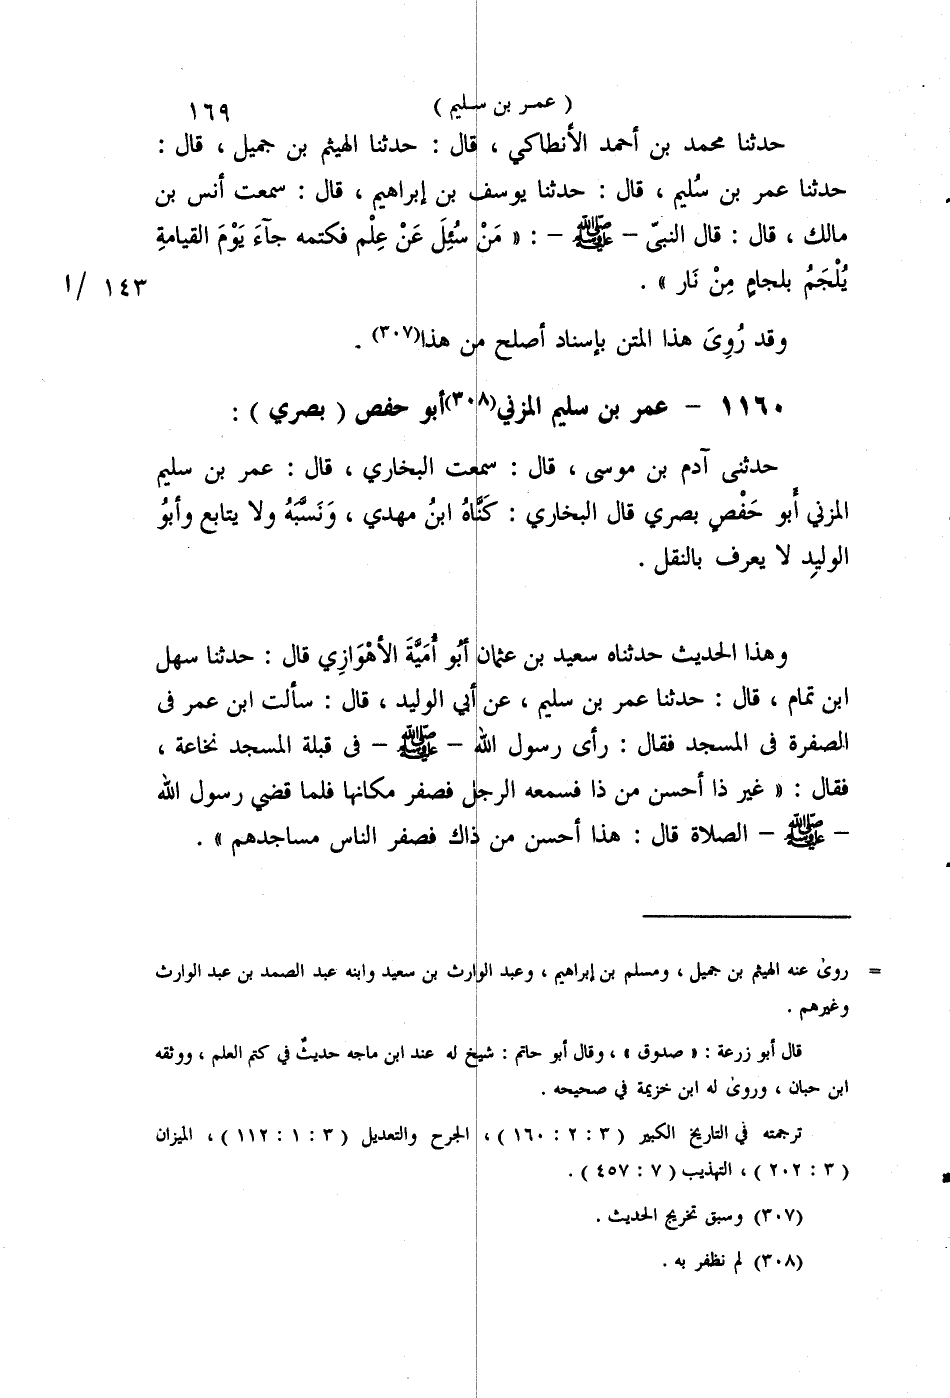 ( عمر بن سليم ) ١٦٩
حدثنا محمد بن أحمد الأنطاكي ، قال : حدثنا الهيثم بن جميل ، قال :
حدثنا عمر بن سُليم ، قال : حدثنا يوسف بن إبراهيم ، قال : سمعت أنس بن
مالك ، قال : قال النبىّ – ﷺ – : « مَنْ سُئِلَ عَنْ عِلْم فكتمه جآءَ يَوْمَ القيامةِ
يُلْجَمُ بلجامٍ مِنْ نَار » . ١٤٣ /١
وقد رُوِىَ هذا المتن بإسناد أصلح من هذا(٣٠٧) .
١١٦٠ – عمر بن سليم المزني(٣٠٨)أبو حفص ( بصري ) :
حدثنى آدم بن موسى ، قال : سمعت البخاري ، قال : عمر بن سليم
المزني أَبو حَفْصٍ بصري قال البخاري : كَنَّاهُ ابنُ مهدي ، وَنَسَّبَهُ ولا يتابع وأبوُ
الوليِد لا يعرف بالنقل .
وهذا الحديث حدثناه سعيد بن عثمان أبُو أُمَيَّةَ الأهْوَازِي قال : حدثنا سهل
ابن تمام ، قال : حدثنا عمر بن سليم ، عن أبي الوليد ، قال : سألت ابن عمر فى
الصفرة فى المسجد فقال : رأى رسول الله – ﷺ – فى قبلة المسجد نخاعة ،
فقال : « غير ذا أحسن من ذا فسمعه الرجل فصفر مكانها فلما قضي رسول الله
– ﷺ – الصلاة قال : هذا أحسن من ذاك فصفر الناس مساجدهم » .
= روىٰ عنه الهيثم بن جميل ، ومسلم بن إبراهيم ، وعبد الوارث بن سعيد وابنه عبد الصمد بن عبد الوارث
وغيرهم .
قال أبو زرعة : « صدوق » ، وقال أبو حاتم : شيخ له عند ابن ماجه حديثٌ في كتم العلم ، ووثقه
ابن حبان ، وروىٰ له ابن خزيمة في صحيحه .
ترجمته في التاريخ الكبير ( ٣ : ٢ : ١٦٠ ) ، الجرح والتعديل ( ٣ : ١ : ١١٢ ) ، الميزان
( ٣ : ٢٠٢ ) ، التهذيب ( ٧ : ٤٥٧ ) .
(٣٠٧) وسبق تخريج الحديث .
(٣٠٨) لم نظفر به .